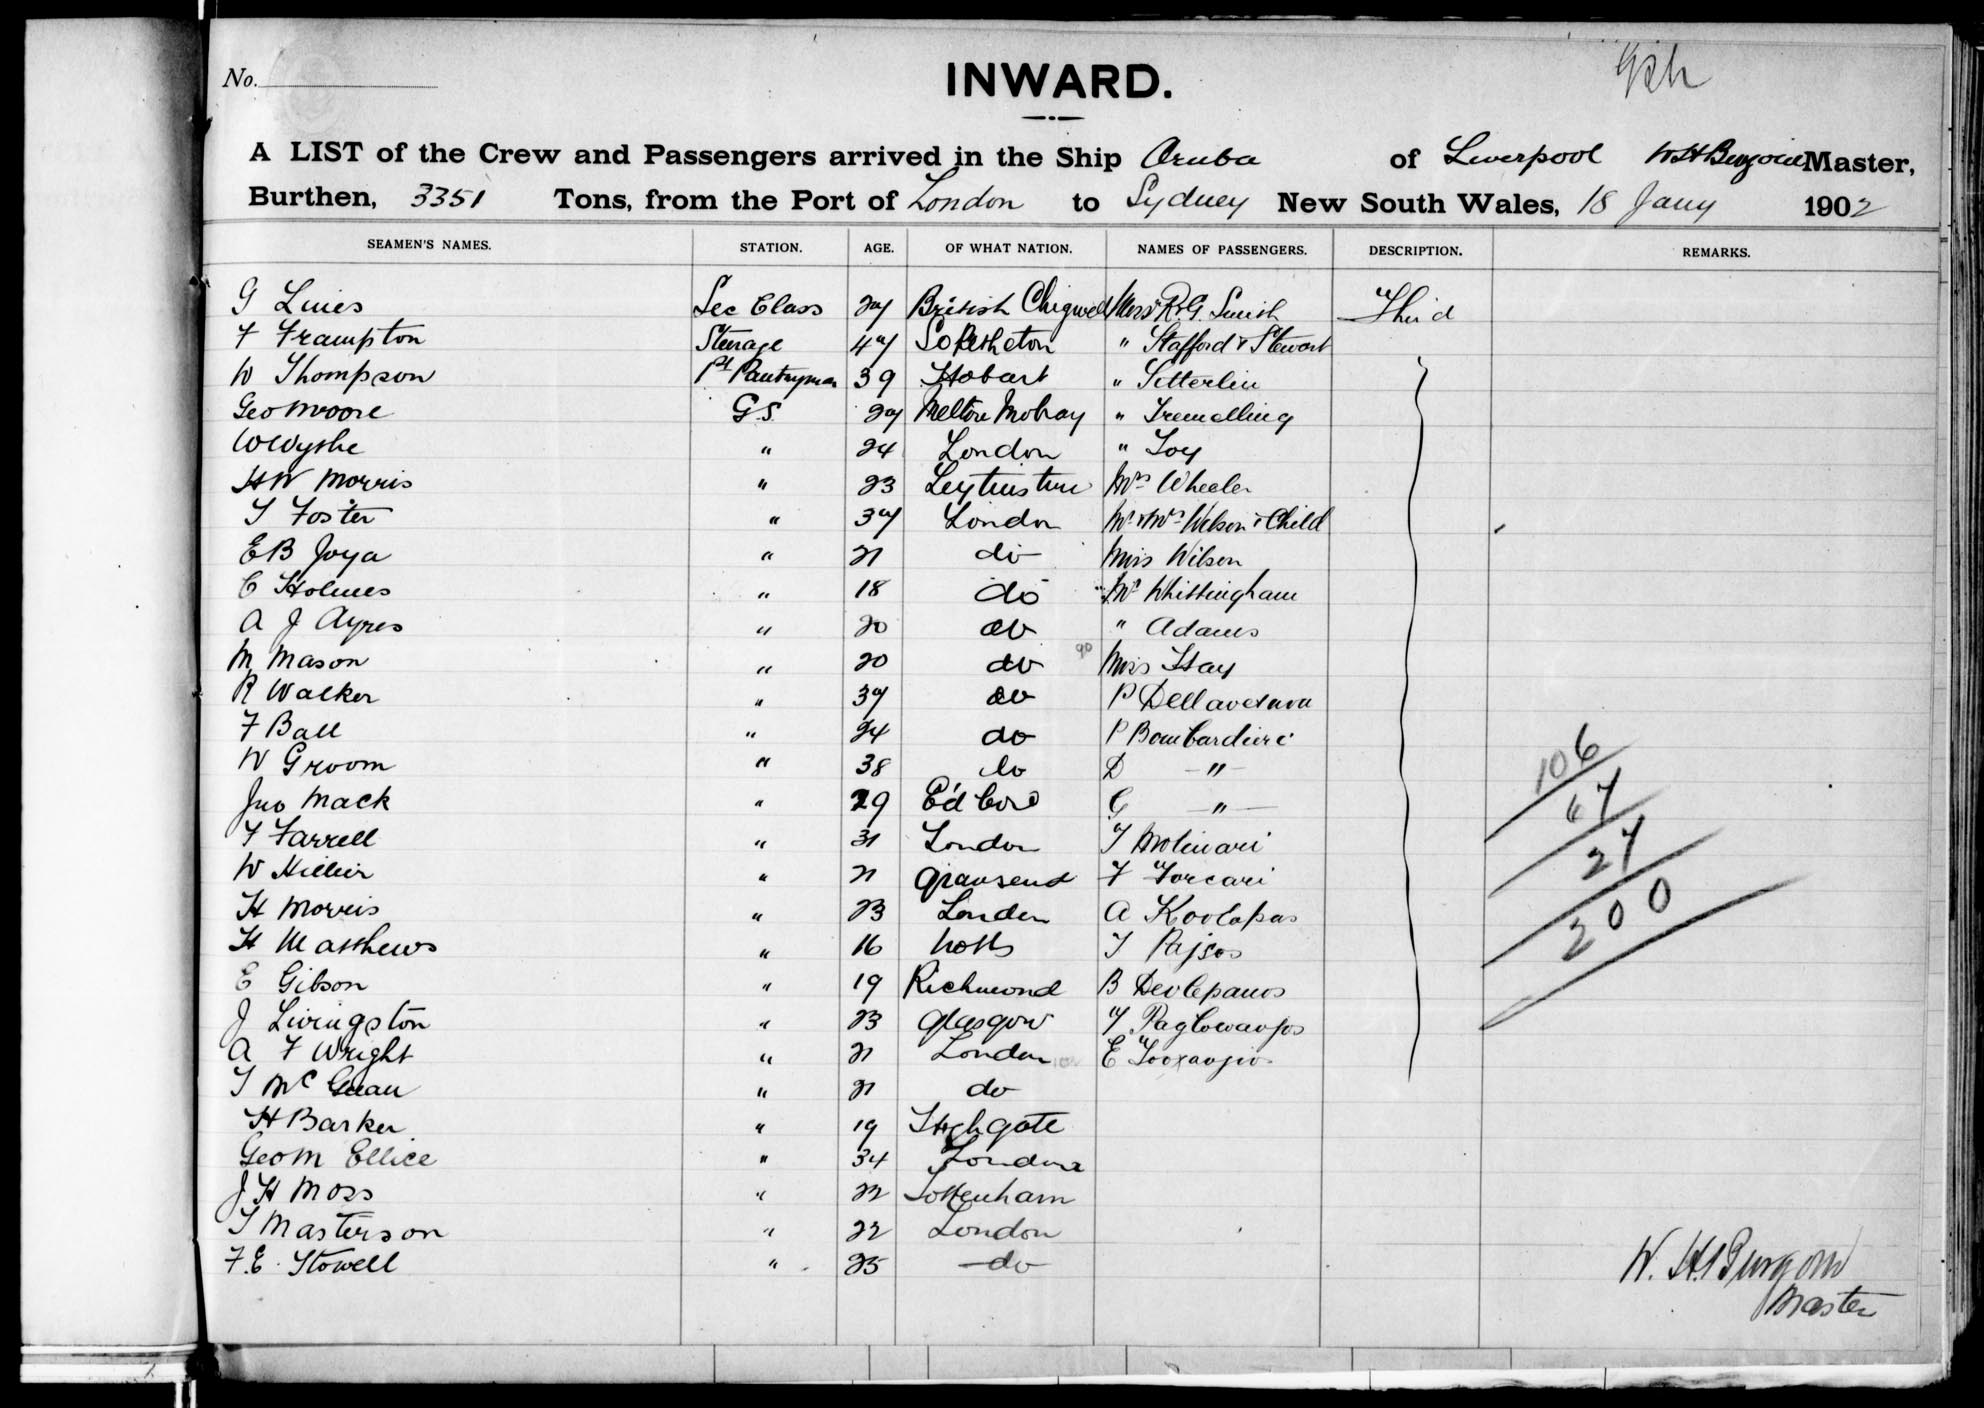 No.
INWARD.
A LIST of the Crew and Passengers arrived in the Ship Oruba of Liverpool Master,
Burthen, 3351 Tons, from the Port of London to Sydney New South Wales, 18 Jany 1902
SEAMEN'S NAMES. STATION. AGE. OF WHAT NATION. NAMES OF PASSENGERS. DESCRIPTION. REMARKS.
G Lines Sec Class 27 British Chigwell Messrs R.G. Smith Third
F Frampton Steerage 47 " Stafford & Stewart
W Thompson Pt Pantryman 39 Hobart " Sitterlin
Geo Moore G.S. 27 Melton Mobray " Tremelling
W Wythe " 24 London " Toy
H W Morris " 23 Mrs Wheeler
T Foster " 37 London Mr & Mrs Wilson & Child
E B Joya " 21 do Miss Wilson
C Holmes " 18 do Mr Whittingham
A J Ayres " 20 do " Adams
M Mason " 20 do Miss Hay
R Walker " 37 do P Dellavedova
F Ball " 24 do P Bombardieri
W Groom " 38 do D - " -
Jno Mack " 29 G - " -
F Farrell " 31 London T Molinari
W Hillier " 21 Gravsend F Forcari
H Morris " 23 London A
H Matthews " 16 Notts
E Gibson " 19 Richmond B
J Livingston " 23 Glasgow
A F Wright " 21 London E
T Mc " 21 do
H Barker " 19 Highgate
Geo M Ellice " 34 London
J H Moss " 22 Tottenham
T Masterson " 22 London
F.E. Stowell " 25 do
106
67
27
200
W. H. Burgoin
Master